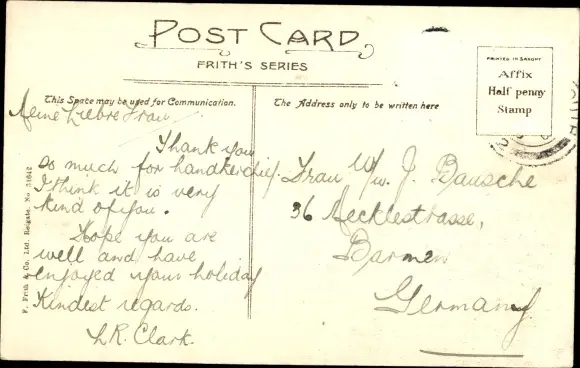 POST CARD
FRITH'S SERIES
PRINTED IN SAXONY
Affix
Half penny
Stamp
This Space may be used for Communication.
The Address only to be written here
Meine Liebe Frau
Thank you
so much for handkerchief.
I think it is very
kind of you.
Hope you are
well and have
enjoyed your holiday
Kindest regards.
L.R. Clark.
Frau Ww. J. Bausche
36 Mecklestrasse,
Barmen
Germany
F. Frith & Co. Ltd. Reigate. No. 31642